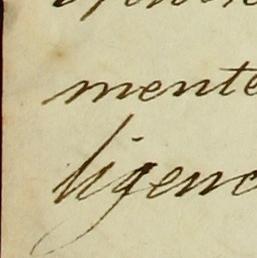 mente
ligenc